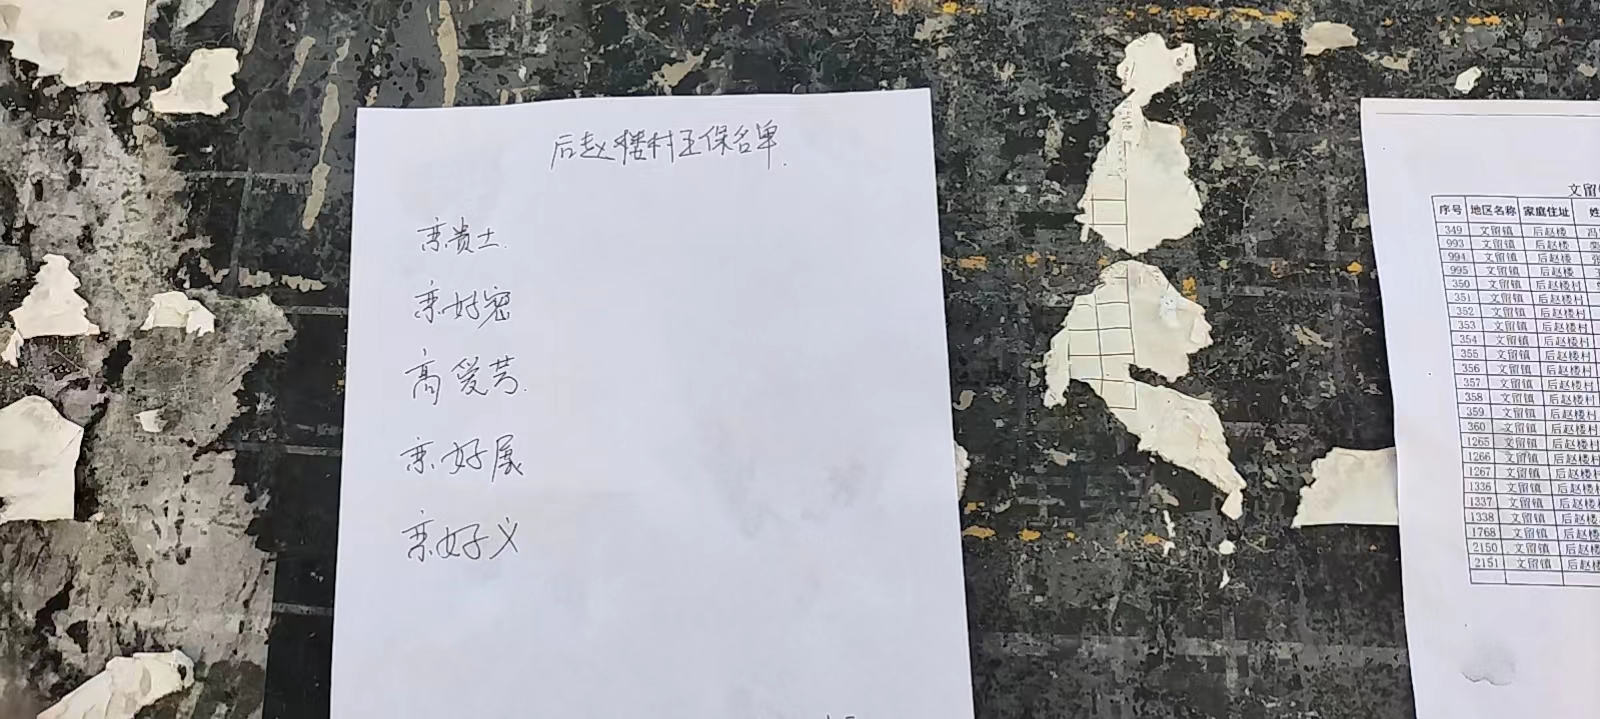 后赵楼村五保名单.
栾贵士.
栾好密
高爱芳.
栾好展
栾好义
文留
序号 地区名称 家庭住址 姓
349 文留镇 后赵楼 冯
993 文留镇 后赵楼 栾
994 文留镇 后赵楼 张
995 文留镇 后赵楼
350 文留镇 后赵楼村
351 文留镇 后赵楼村
352 文留镇 后赵楼村
353 文留镇 后赵楼村
354 文留镇 后赵楼村
355 文留镇 后赵楼村
356 文留镇 后赵楼村
357 文留镇 后赵楼村
358 文留镇 后赵楼村
359 文留镇 后赵楼村
360 文留镇 后赵楼村
1265 文留镇 后赵楼村
1266 文留镇 后赵楼村
1267 文留镇 后赵楼村
1336 文留镇 后赵楼
1337 文留镇 后赵楼
1338 文留镇 后赵楼
1768 文留镇 后赵楼
2150 文留镇 后赵楼
2151 文留镇 后赵楼